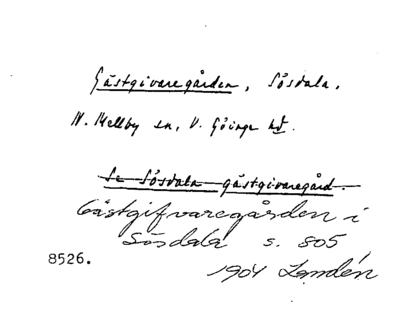 Gästgivaregården, Sösdala.
N. Mellby sn, V. Göinge hd.
Se Sösdala gästgivaregård.
Gästgifvaregården i
Sösdala s. 805
8526.
1904 Landén